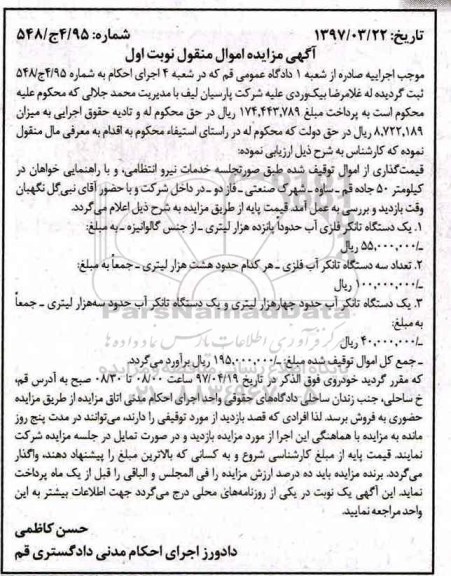 تاریخ: ۱۳۹۷/۰۳/۲۲ شماره: ۴/۹۵ج/۵۴۸
آگهی مزایده اموال منقول نوبت اول
موجب اجراییه صادره از شعبه ۱ دادگاه عمومی قم که در شعبه ۴ اجرای احکام به شماره ۴/۹۵ج/۵۴۸
ثبت گردیده له غلامرضا بیک‌وردی علیه شرکت پارسیان لیف با مدیریت محمد جلالی که محکوم علیه
محکوم است به پرداخت مبلغ ۱۷۴,۴۴۳,۷۸۹ ریال در حق محکوم له و تادیه حقوق اجرایی به میزان
۸,۷۲۲,۱۸۹ ریال در حق دولت که محکوم له در راستای استیفاء محکوم به اقدام به معرفی مال منقول
نموده که کارشناس به شرح ذیل ارزیابی نموده:
قیمت‌گذاری از اموال توقیف شده طبق صورتجلسه خدمات نیرو انتظامی، و با راهنمایی خواهان در
کیلومتر ۵۰ جاده قم ـ ساوه ـ شهرک صنعتی ـ فاز دو ـ در داخل شرکت و با حضور آقای نبی‌گل نگهبان
وقت بازدید و بررسی به عمل آمد، قیمت پایه از طریق مزایده به شرح ذیل اعلام می‌گردد.
۱. یک دستگاه تانکر فلزی آب حدوداً پانزده هزار لیتری ـ از جنس گالوانیزه ـ به مبلغ:
ـ/۵۵,۰۰۰,۰۰۰ ریال
۲. تعداد سه دستگاه تانکر آب فلزی ـ هر کدام حدود هشت هزار لیتری ـ جمعاً به مبلغ:
ـ/۱۰۰,۰۰۰,۰۰۰ ریال
۳. یک دستگاه تانکر آب حدود چهارهزار لیتری و یک دستگاه تانکر آب حدود سه‌هزار لیتری ـ جمعاً
به مبلغ:
ـ/۴۰,۰۰۰,۰۰۰ ریال
ـ جمع کل اموال توقیف شده مبلغ: ـ/۱۹۵,۰۰۰,۰۰۰ ریال برآورد می‌گردد.
که مقرر گردید خودروی فوق الذکر در تاریخ ۹۷/۰۴/۱۹ ساعت ۰۸/۰۰ تا ۰۸/۳۰ صبح به آدرس قم،
خ ساحلی، جنب زندان ساحلی دادگاه‌های حقوقی واحد اجرای احکام مدنی اتاق مزایده از طریق مزایده
حضوری به فروش برسد. لذا افرادی که قصد بازدید از مورد توقیفی را دارند، می‌توانند در مدت پنج روز
مانده به مزایده با هماهنگی این اجرا از مورد مزایده بازدید و در صورت تمایل در جلسه مزایده شرکت
نمایند. قیمت پایه از مبلغ کارشناسی شروع و به کسانی که بالاترین مبلغ را پیشنهاد دهند، واگذار
می‌گردد. برنده مزایده باید ده درصد ارزش مزایده را فی المجلس و الباقی را قبل از یک ماه پرداخت
نماید. این آگهی یک نوبت در یکی از روزنامه‌های محلی درج می‌گردد جهت اطلاعات بیشتر به این
واحد مراجعه نمایید.
حسن کاظمی
دادورز اجرای احکام مدنی دادگستری قم
ParsNamadData